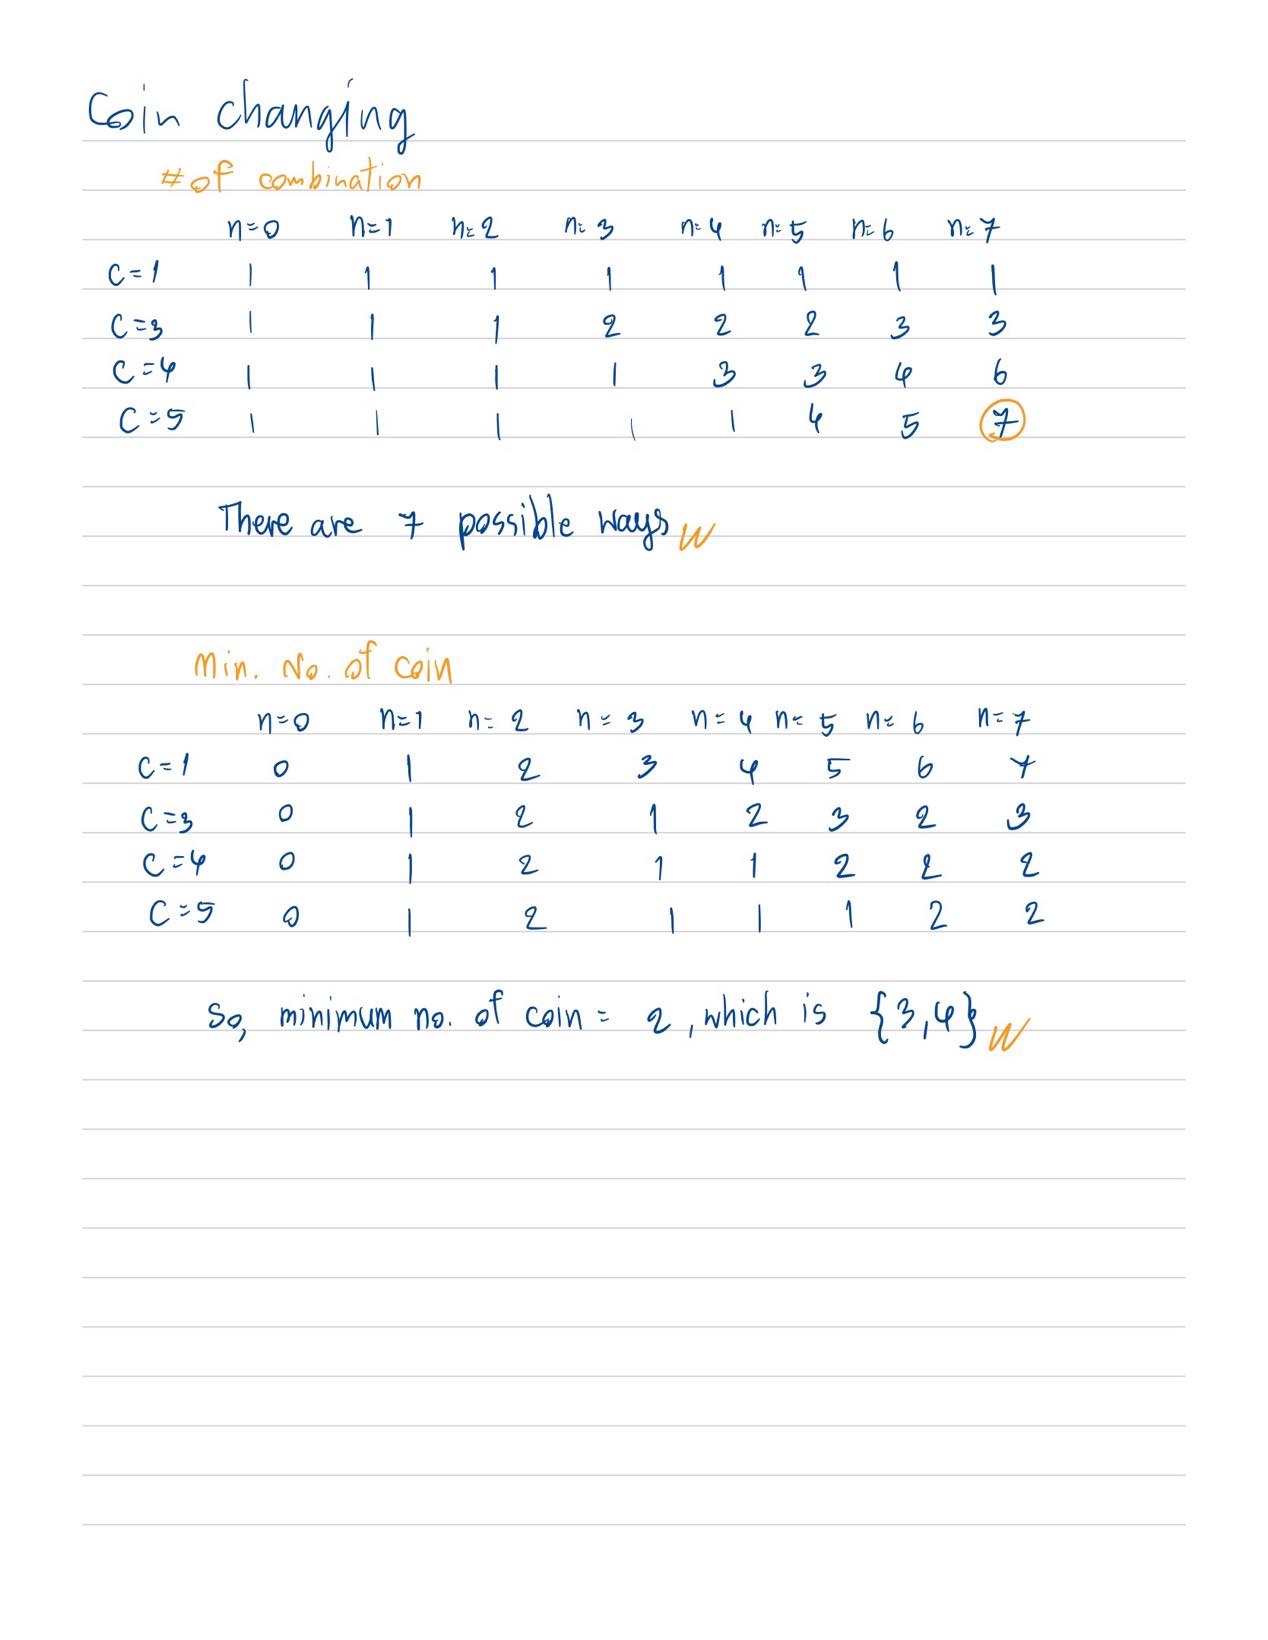 Coin changing
# of combination
n=0 n=1 n=2 n=3 n=4 n=5 n=6 n=7
C=1 1 1 1 1 1 1 1 1
C=3 1 1 1 2 2 2 3 3
C=4 1 1 1 1 3 3 4 6
C=5 1 1 1 1 1 4 5 7
There are 7 possible ways
Min. No. of coin
n=0 n=1 n=2 n=3 n=4 n=5 n=6 n=7
C=1 0 1 2 3 4 5 6 7
C=3 0 1 2 1 2 3 2 3
C=4 0 1 2 1 1 2 2 2
C=5 0 1 2 1 1 1 2 2
So, minimum no. of coin = 2, which is {3,4}